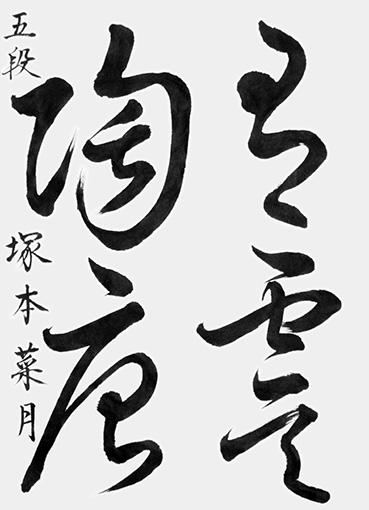 有虞
陶唐
五段 塚本菜月